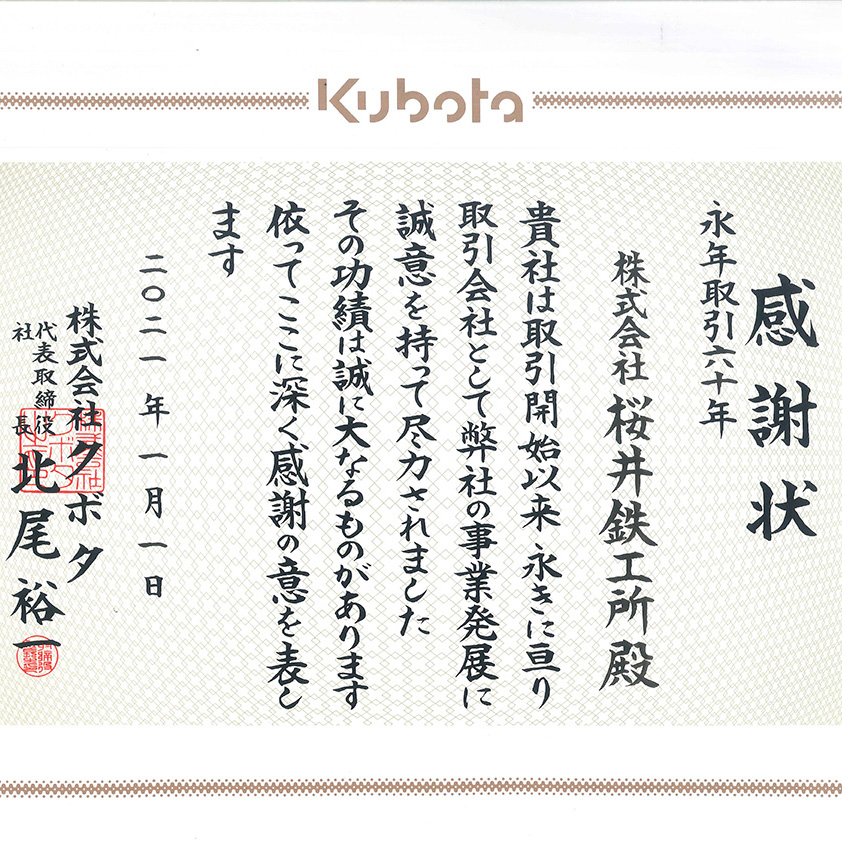 Kubota
感謝状
永年取引六十年
株式会社桜井鉄工所殿
貴社は取引開始以来永きに亘り
取引会社として弊社の事業発展に
誠意を持って尽力されました
その功績は誠に大なるものがあります
依ってここに深く感謝の意を表し
ます
二〇二一年一月一日
株式会社クボタ
代表取締役
社長
北尾裕一